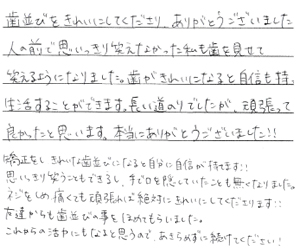 歯並びをきれいにしてくださり、ありがとうございました
人の前で思いっきり笑えなかった私も歯を見せて
笑えるようになりました。歯がきれいになると自信も持ち
生活することができます。長い道のりでしたが、頑張って
良かったと思います。本当にありがとうございました!!
矯正をしきれいな歯並びになると自分に自信が持てます!!
思いっきり笑うこともできるし、手で口を隠していたことも無くなりました。
ネジをしめ痛くても頑張れば絶対にきれいにしてくださります!!
友達からも歯並びの事をほめてもらいました。
これからの活力にもなると思うので、あきらめずに続けてください!